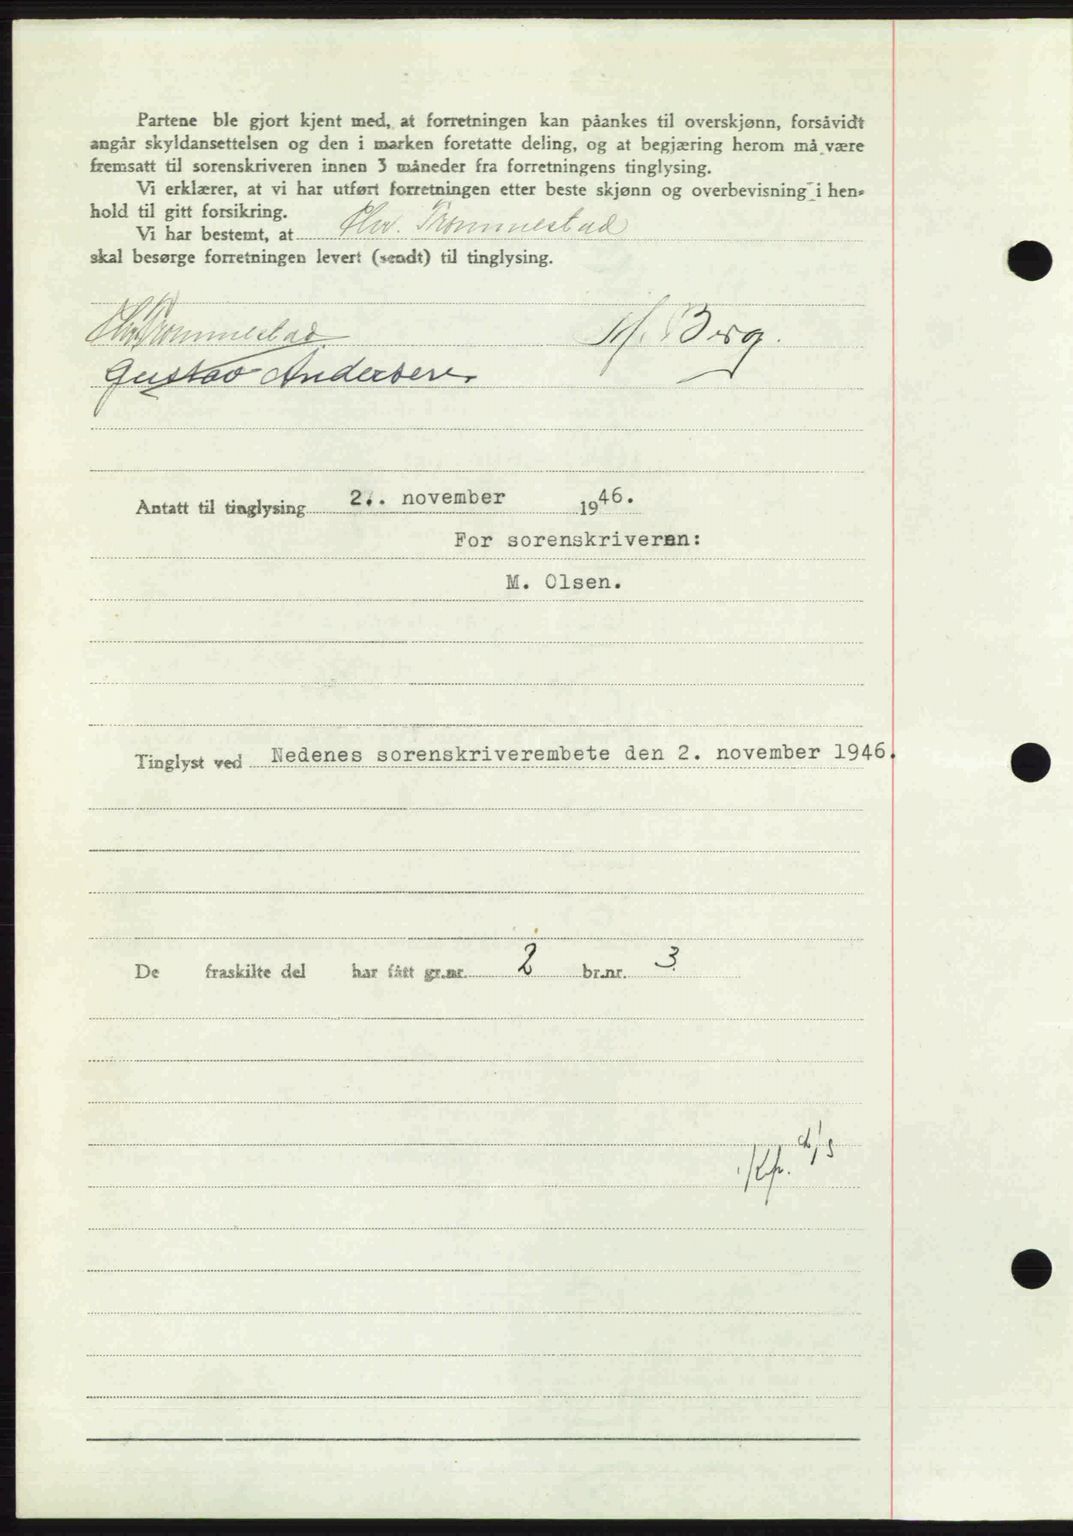 Partene ble gjort kjent med, at forretningen kan påankes til overskjønn, forsåvidt
angår skyldansettelsen og den i marken foretatte deling, og at begjæring herom må være
fremsatt til sorenskriveren innen 3 måneder fra forretningens tinglysing.
Vi erklærer, at vi har utført forretningen etter beste skjønn og overbevisning i hen-
hold til gitt forsikring.
Vi har bestemt, at Chr. Trommestad
skal besørge forretningen levert (sendt) til tinglysing.
Chr. Trommestad
Berg.
Gustav Andersen
Antatt til tinglysing 2. november 1946.
For sorenskriveren:
M. Olsen.
Tinglyst ved Nedenes sorenskriverembete den 2. november 1946.
De fraskilte del har fått gr.nr. 2 br.nr. 3